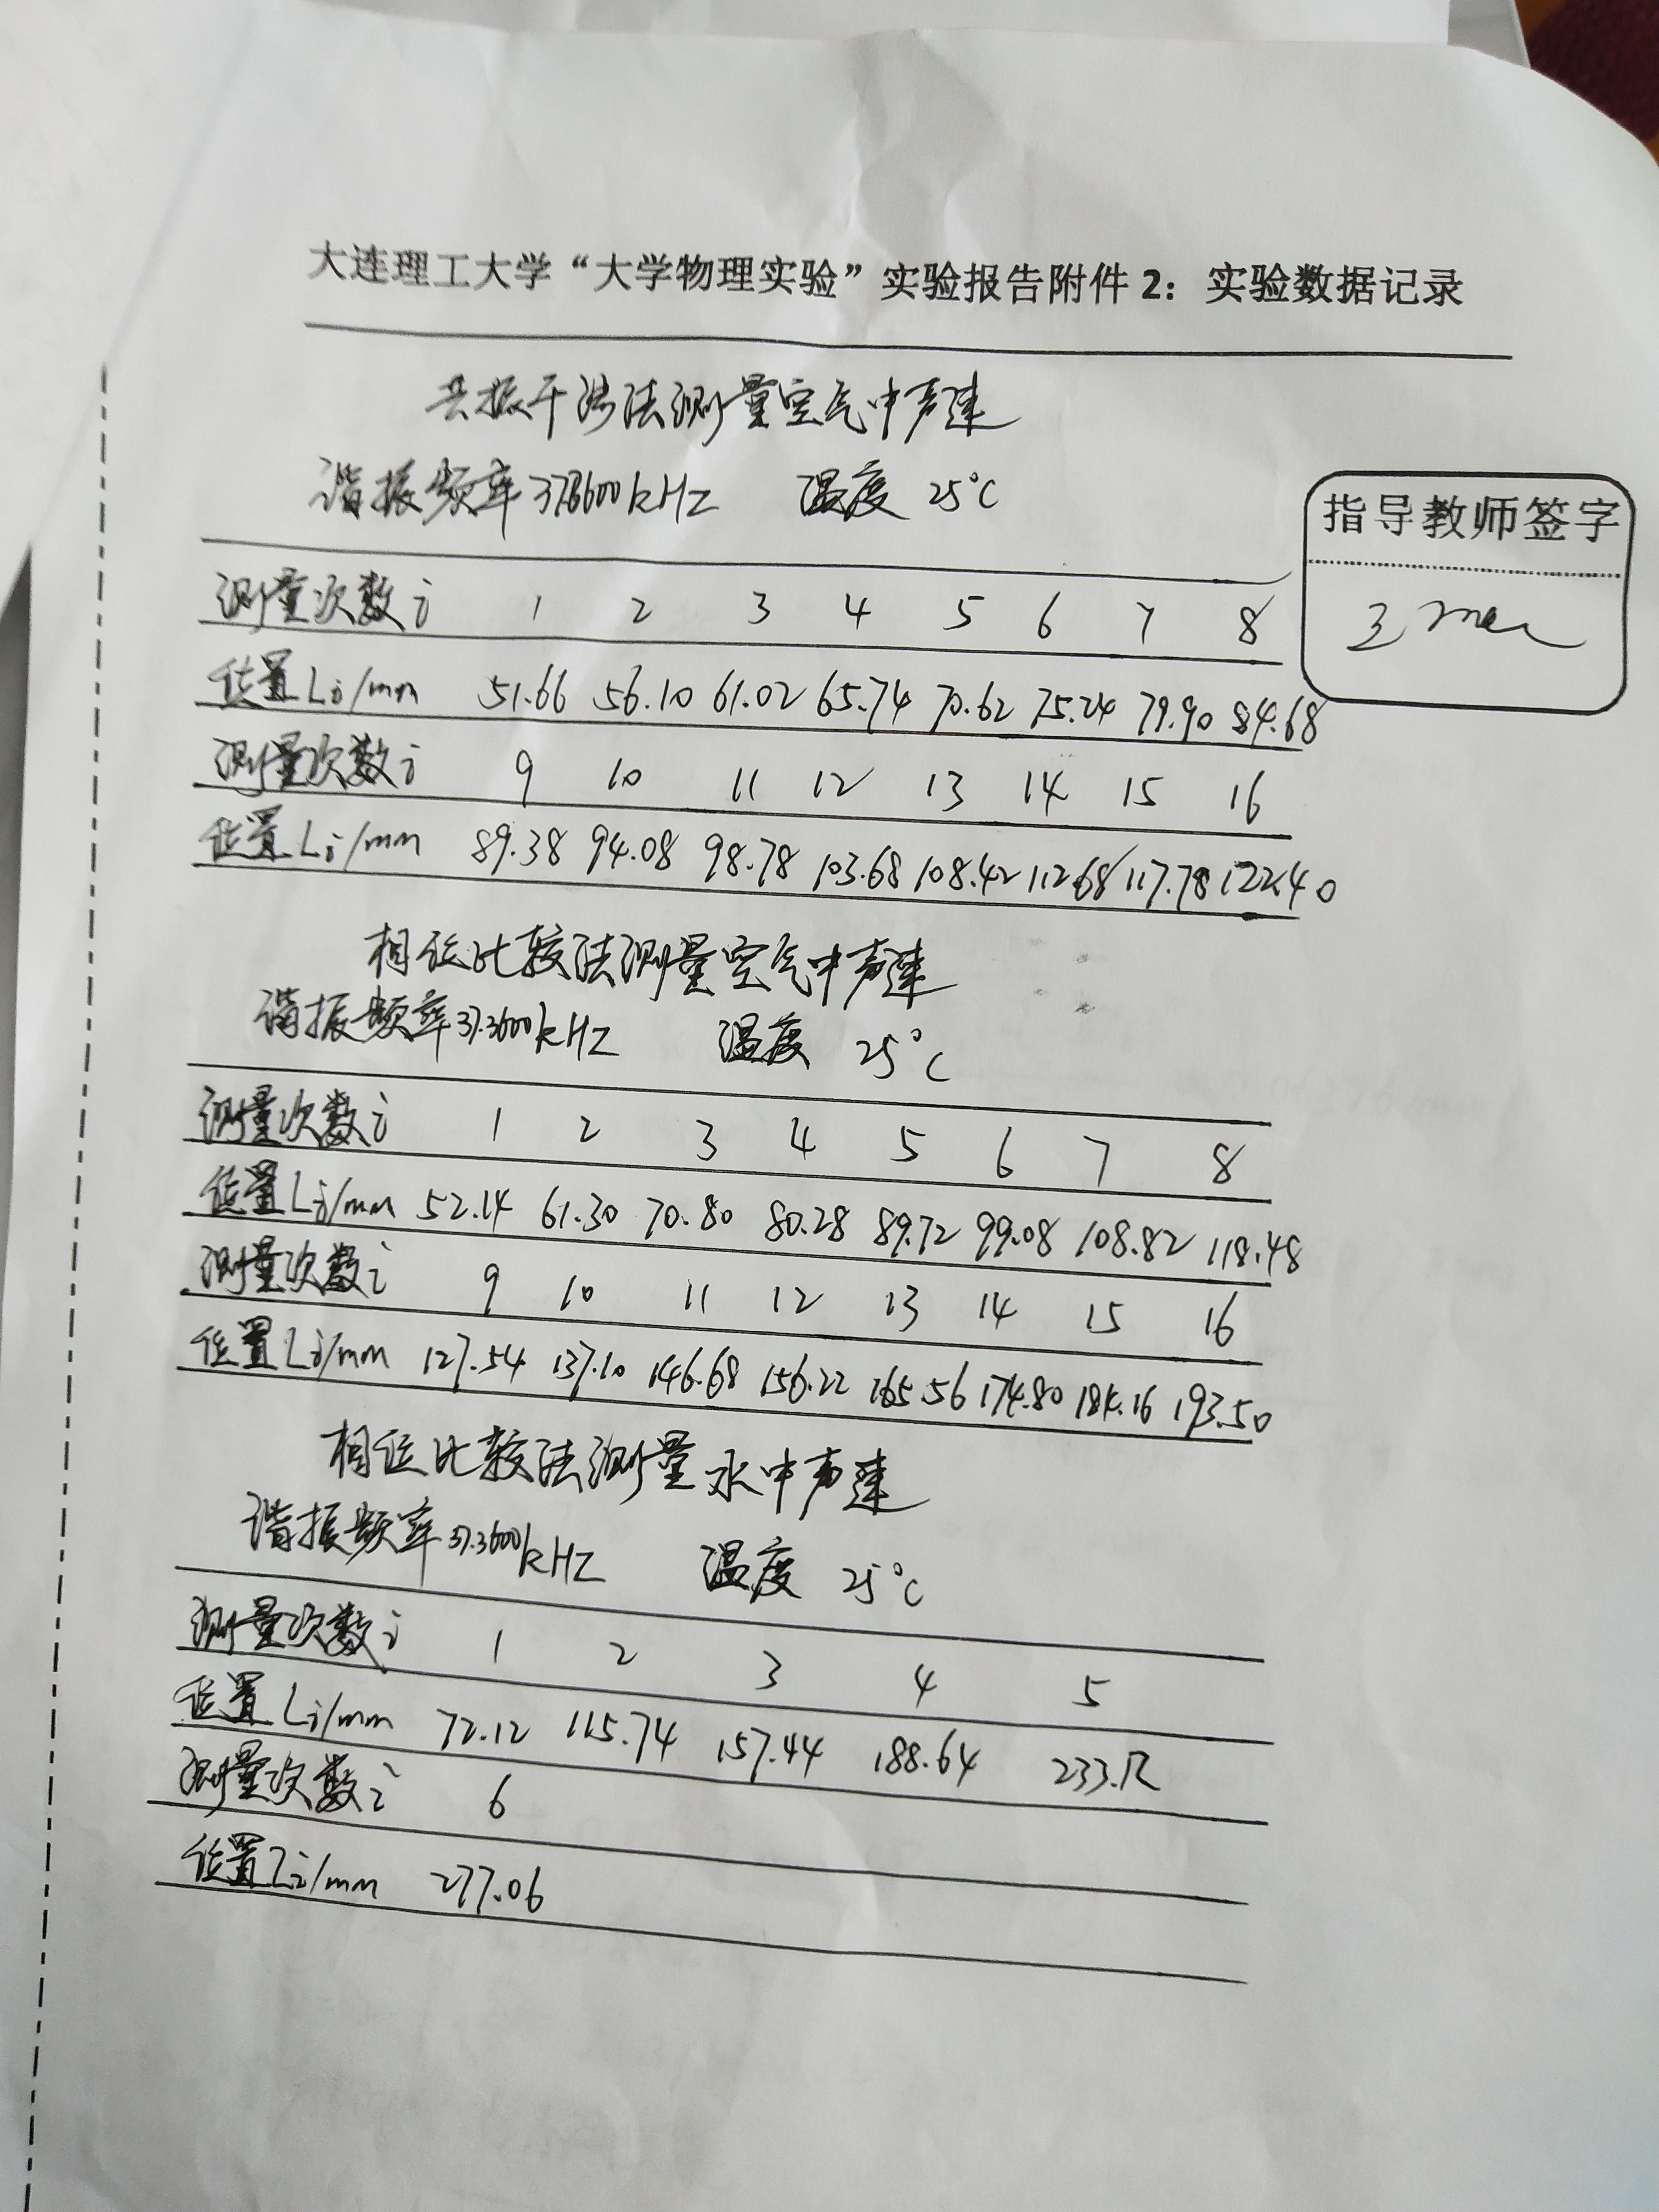 大连理工大学“大学物理实验”实验报告附件2：实验数据记录
共振干涉法测量空气中声速
谐振频率 kHz 温度 25℃
指导教师签字
测量次数i 1 2 3 4 5 6 7 8
位置Li/mm 51.66 56.10 61.02 65.74 70.62 75.24 79.90 84.68
测量次数i 9 10 11 12 13 14 15 16
位置Li/mm 89.38 94.08 98.78 103.68 108.42 112.68 117.78 122.40
相位比较法测量空气中声速
谐振频率37.3600kHz 温度 25℃
测量次数i 1 2 3 4 5 6 7 8
位置Li/mm 52.14 61.30 70.80 80.28 89.72 99.08 108.82 118.48
测量次数i 9 10 11 12 13 14 15 16
位置Li/mm 127.54 137.10 146.68 156.22 165.56 174.80 184.16 193.50
相位比较法测量水中声速
谐振频率37.3600kHz 温度 25℃
测量次数i 1 2 3 4 5
位置Li/mm 72.12 115.74 157.44 188.64 233.12
测量次数i 6
位置Li/mm 277.06